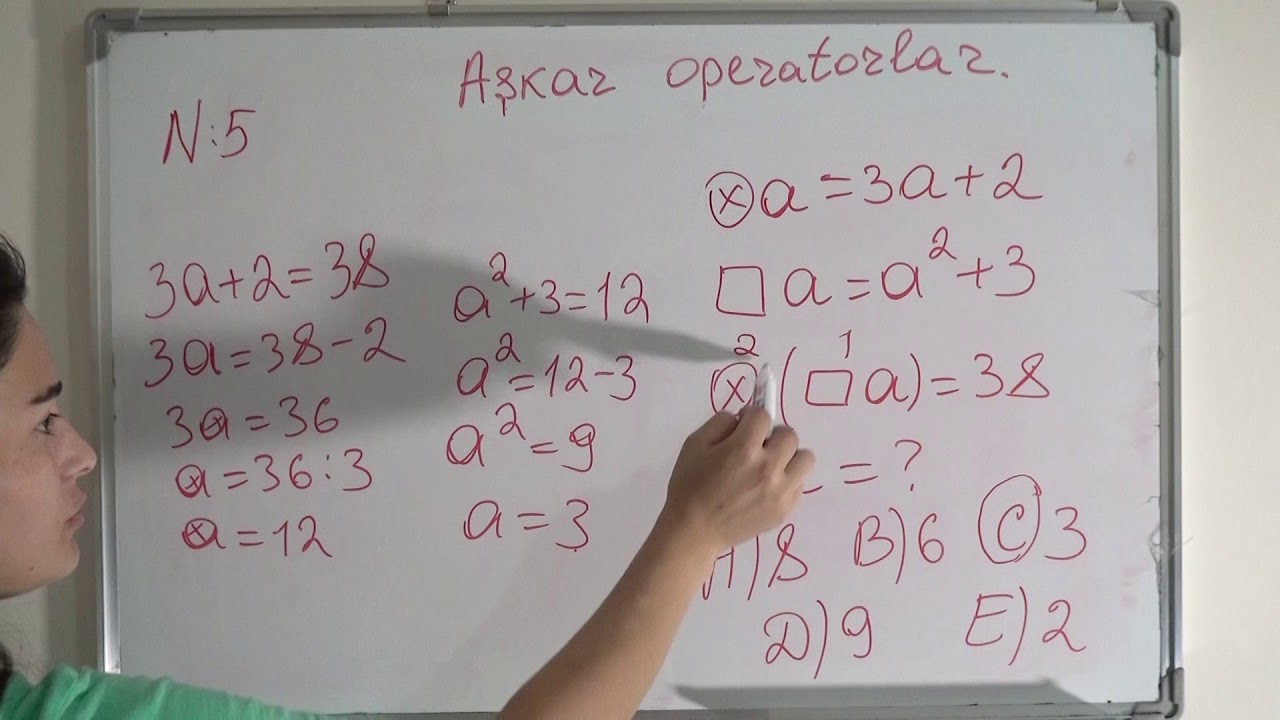 Aşkar operatorlar.
N:5
ⓧa=3a+2
□a=a²+3
2 1
ⓧ(□a)=38
=?
A)8 B)6 C)3
D)9 E)2
3a+2=38
3a=38-2
3a=36
a=36:3
a=12
a²+3=12
a²=12-3
a²=9
a=3